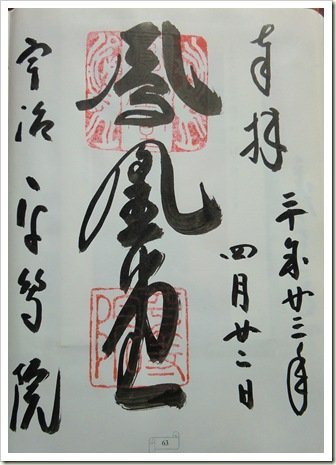 奉拝
平成廿三年
四月廿二日
鳳凰堂
宇治 平等院
63